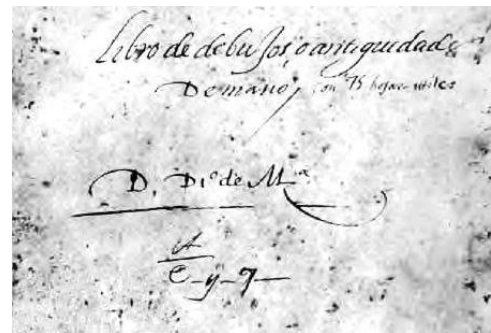 Libro de debujos, o antiguedades
De mano, con 75 hojas utiles
D. D.º de M.ª
A
C-y-7-